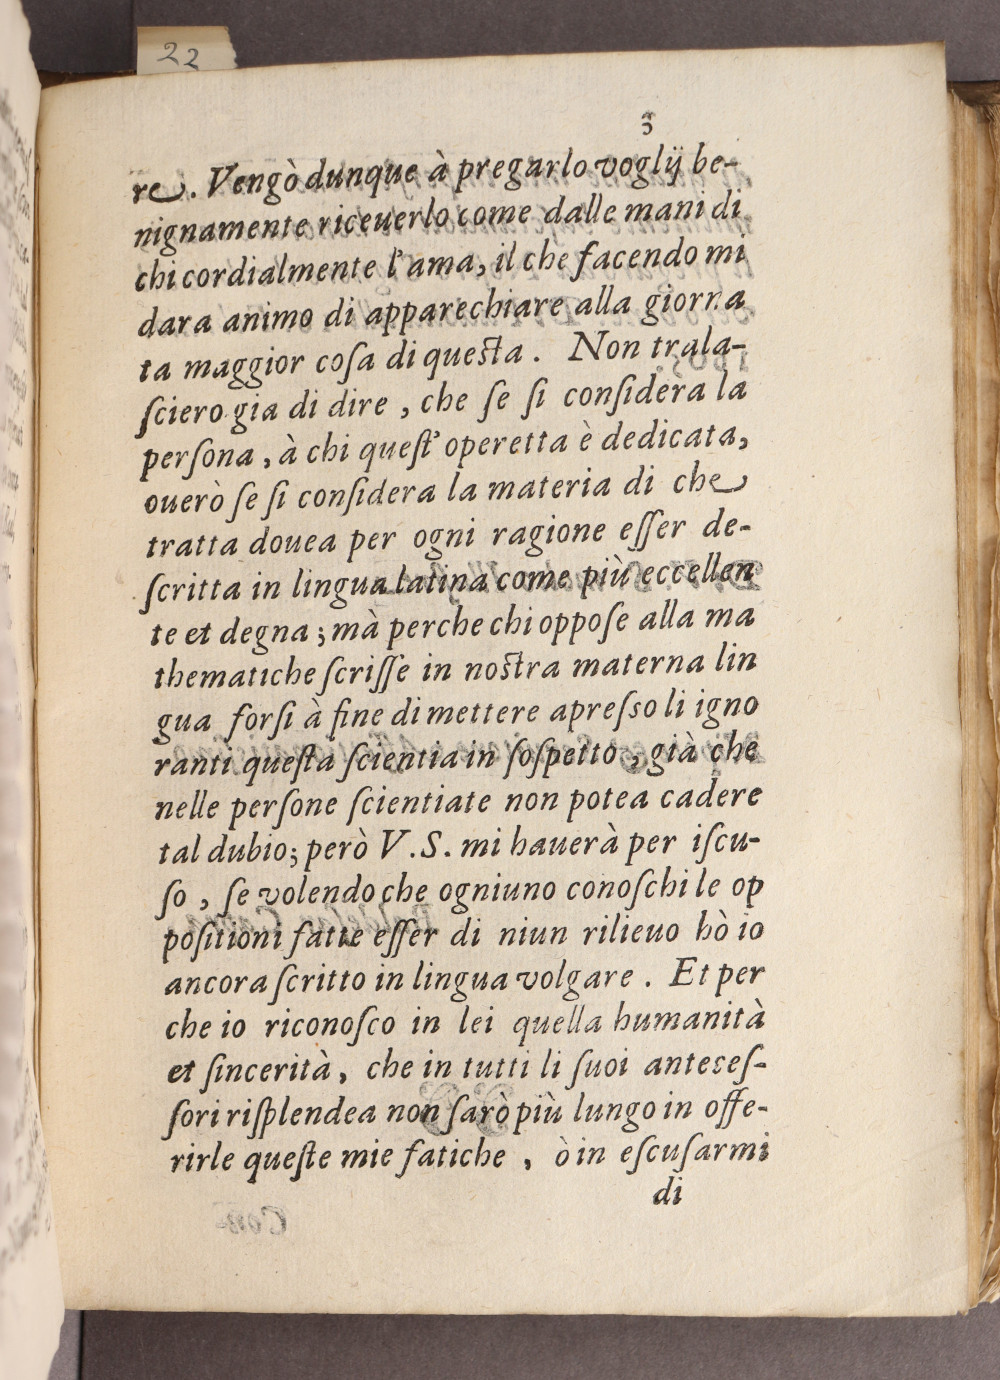 22
3
re. Vengò dunque à pregarlo voglij be-
nignamente riceuerlo come dalle mani di
chi cordialmente l'ama, il che facendo mi
dara animo di apparechiare alla giorna
ta maggior coſa di queſta. Non trala-
ſciero gia di dire, che ſe ſi conſidera la
perſona, à chi queſt' operetta è dedicata,
ouerò ſe ſi conſidera la materia di che
tratta douea per ogni ragione eſſer de-
ſcritta in lingua latina come più eccellen
te et degna; mà perche chi oppoſe alla ma
thematiche ſcriſſe in noſtra materna lin
gua forſi à fine di mettere apreſso li igno
ranti queſta ſcientia in ſoſpetto, già che
nelle perſone ſcientiate non potea cadere
tal dubio; però V.S. mi hauerà per iſcu-
ſo, ſe volendo che ogniuno conoſchi le op
poſitioni fatte eſſer di niun rilieuo hò io
ancora ſcritto in lingua volgare. Et per
che io riconoſco in lei quella humanità
et ſincerità, che in tutti li ſuoi anteceſ-
ſori riſplendea non ſarò più lungo in offe-
rirle queſte mie fatiche, ò in eſcuſarmi
di